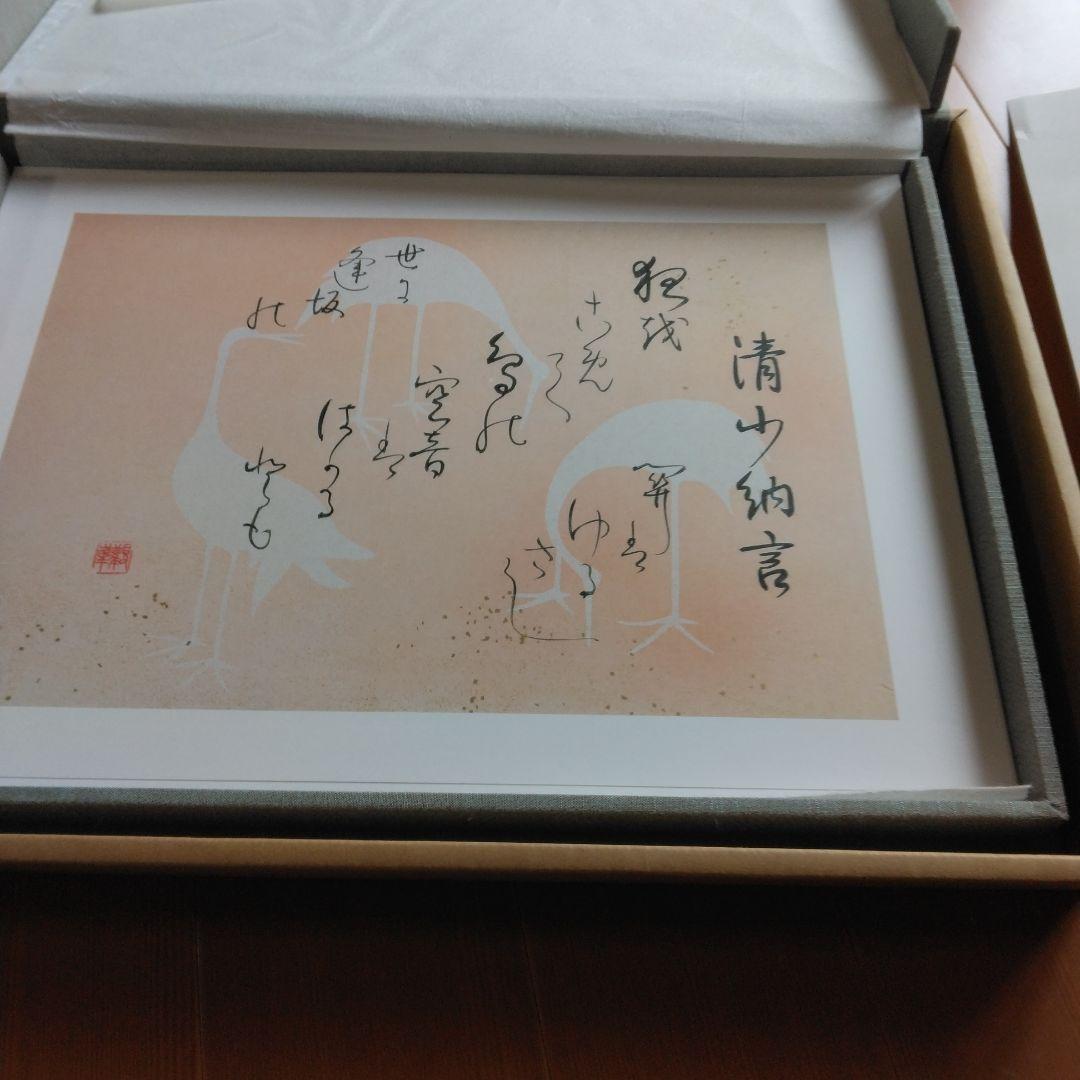 清少納言
夜越
こめ
て
鳥の
空音
は
はかる
とも
世に
逢
坂
の
関は
ゆる
さし